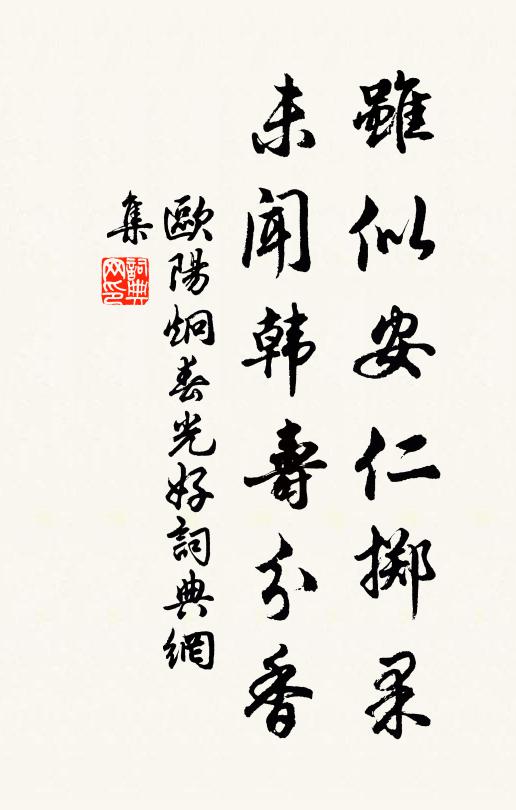 雖似安仁掷果
未聞韩壽分香
歐陽炯春光好詞典網
集
詞典
网印